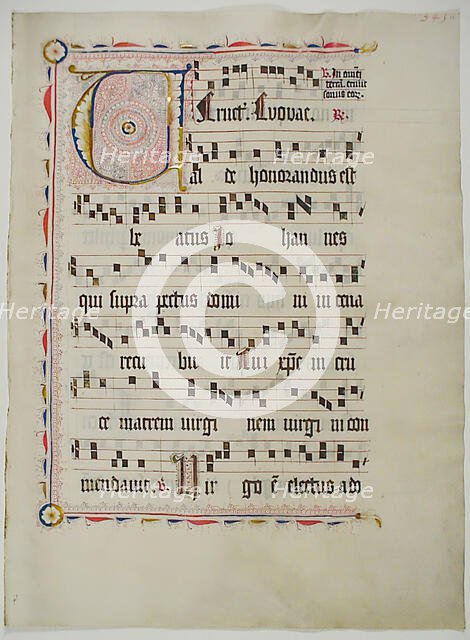 R. In omnē
terrā exiuit
sonus eor.
Euouae. R.
Val de honorandus est
be atus Jo han nes
qui supra pectus domi ni in cena
recu bu it Cui xp̄c in cru
ce matrem uirgi nem uirgi ni con
mendauit. R. Vir go ē electus a do
Heritage
Heritage
Heritage
Heritage
Heritage
Heritage
Heritage